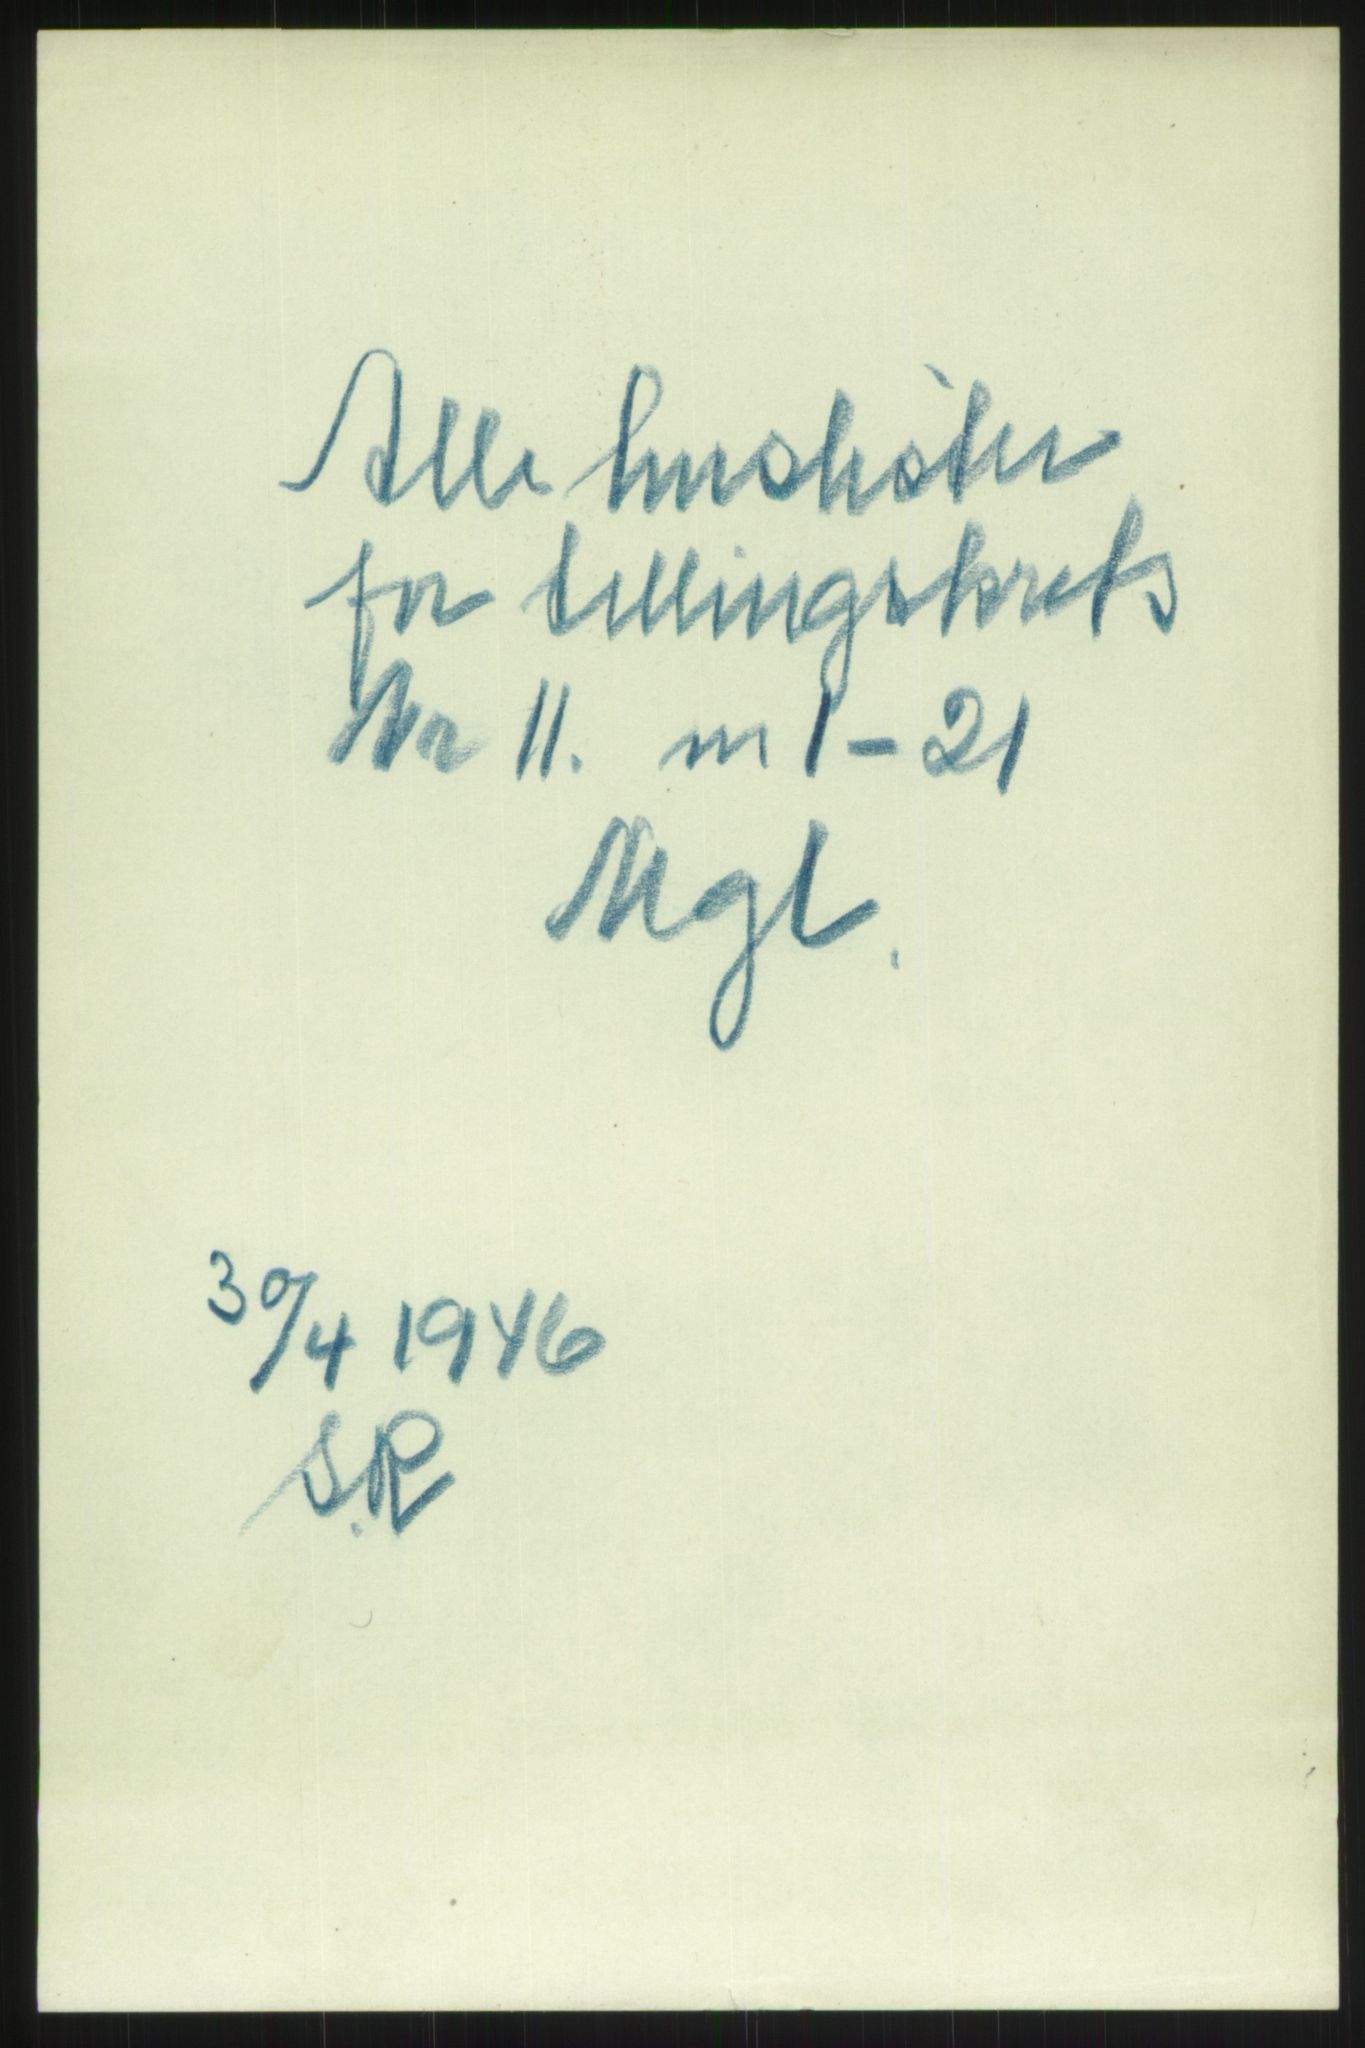 Alle huslister
for tellingskrets
Nr 11. nr 1-21
Mgl.
30/4 1946
S.R